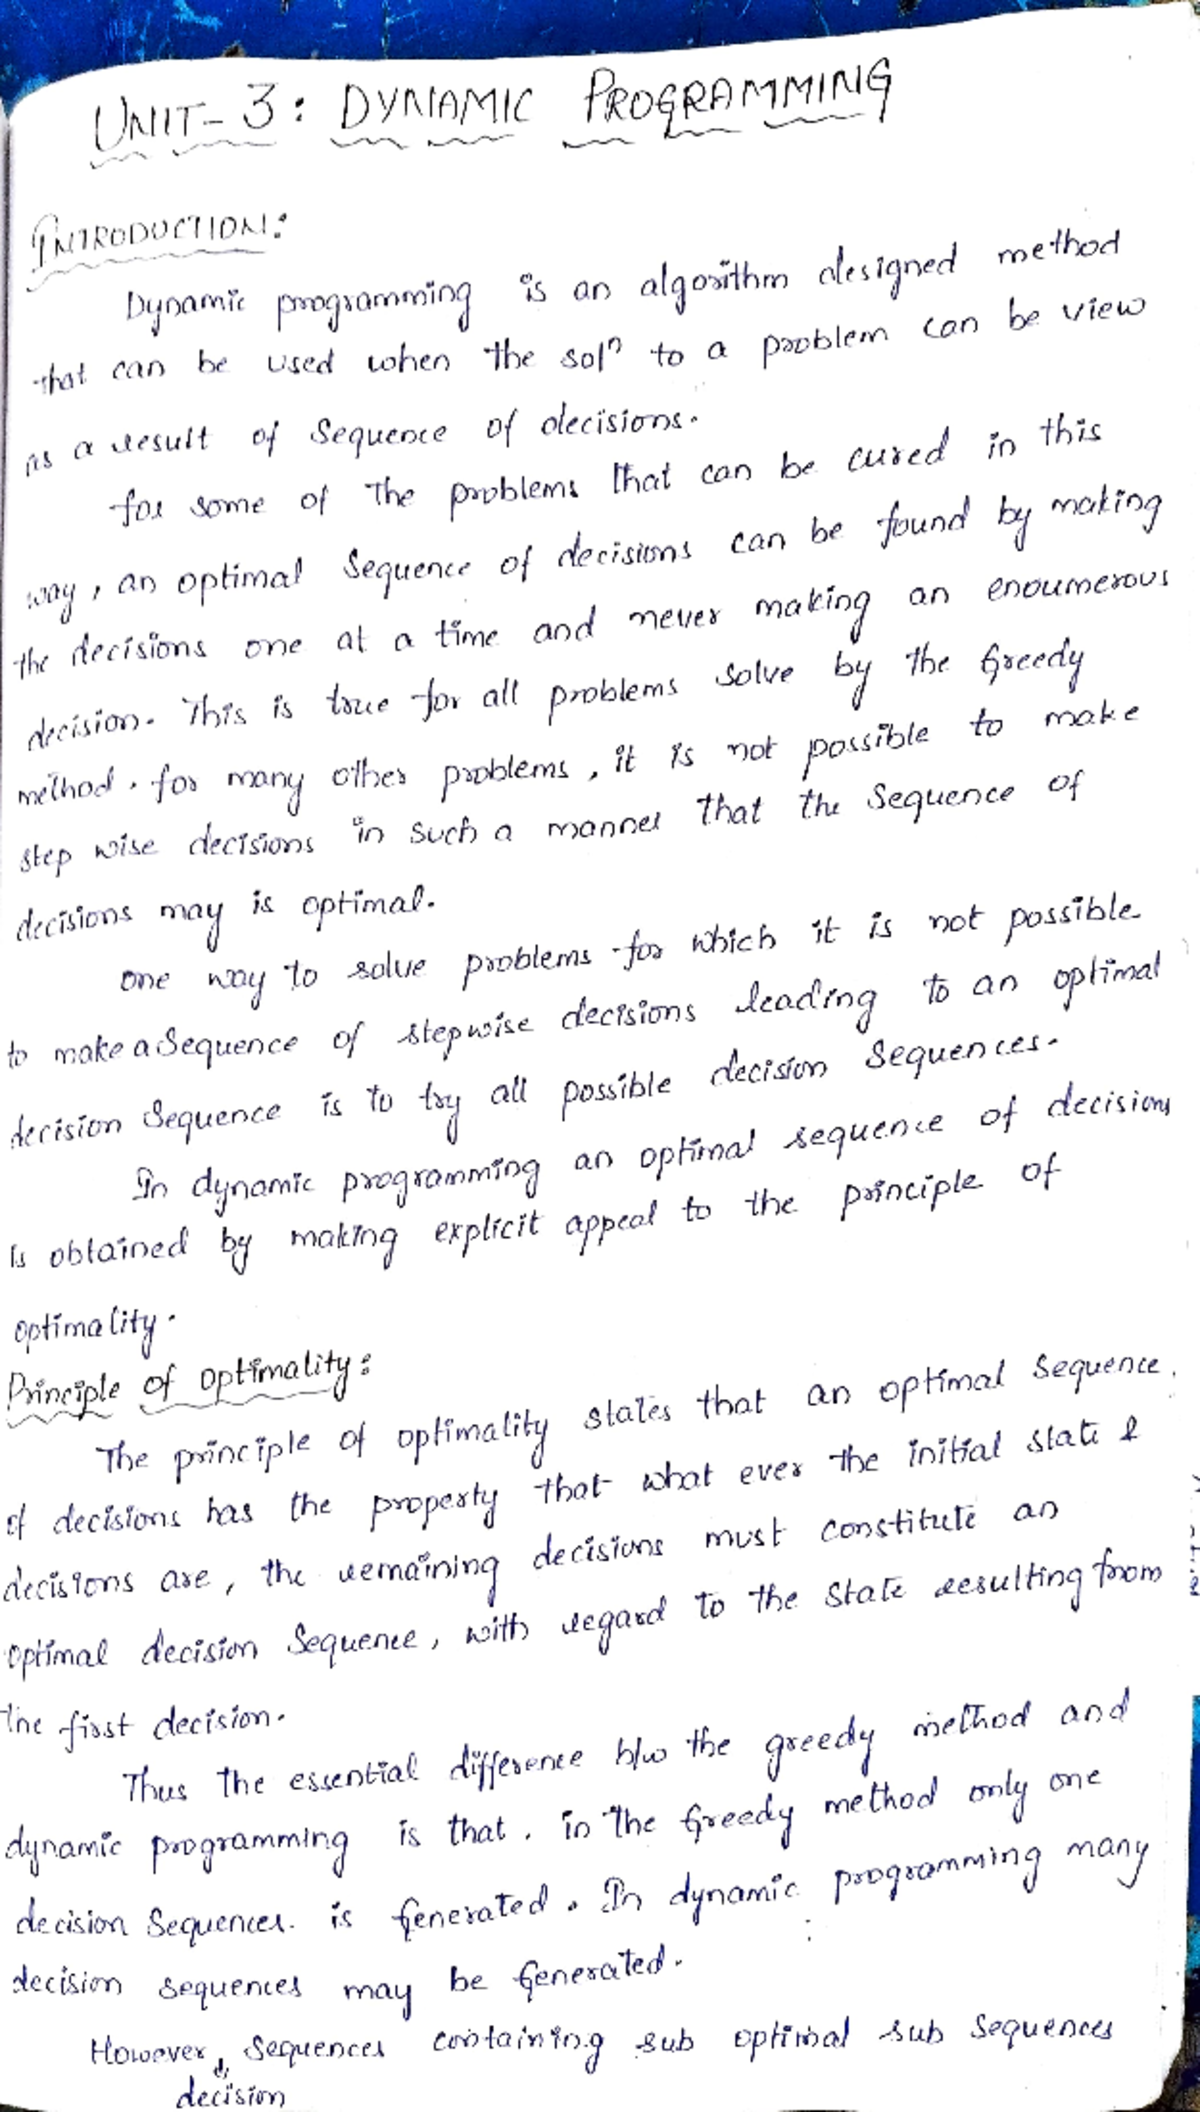 UNIT-3: DYNAMIC PROGRAMMING
INTRODUCTION:
Dynamic programming is an algorithm designed method
that can be used when the solⁿ to a problem can be view
as a result of Sequence of decisions.
for some of the problems that can be cured in this
way, an optimal Sequence of decisions can be found by making
the decisions one at a time and never making an enoumerous
decision. This is true for all problems solve by the Greedy
method. for many other problems, it is not possible to make
step wise decisions in such a manner that the Sequence of
decisions may is optimal.
one way to solve problems for which it is not possible
to make a Sequence of stepwise decisions leading to an optimal
decision Sequence is to try all possible decision Sequences.
In dynamic programming an optimal sequence of decisions
is obtained by making explicit appeal to the principle of
optimality.
Principle of optimality:
The principle of optimality states that an optimal Sequence
of decisions has the property that what ever the initial state &
decisions are, the remaining decisions must constitute an
optimal decision Sequence, with regard to the State resulting from
the first decision.
Thus the essential difference b/w the greedy method and
dynamic programming is that. in the Greedy method only one
decision Sequences. is Generated. In dynamic programming many
decision sequences may be Generated.
However, Sequences containing sub optimal sub Sequences
decision